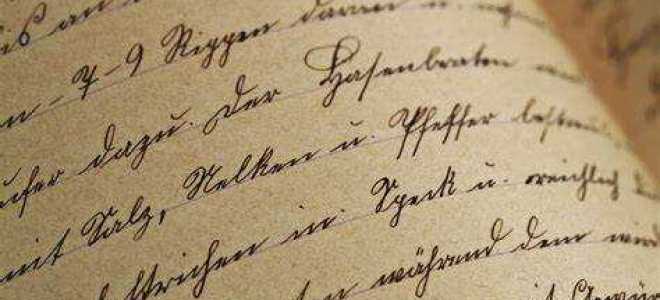 is an
n - 7-9 Rippen daran u.
dazu. Der Hasenbraten
mit Salz, Nelken u. Pfeffer bestreu
strichen in Speck u. reichlich
während dem wird